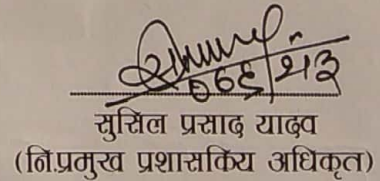 सुसिल प्रसाद यादव
(नि.प्रमुख प्रशासकिय अधिकृत)